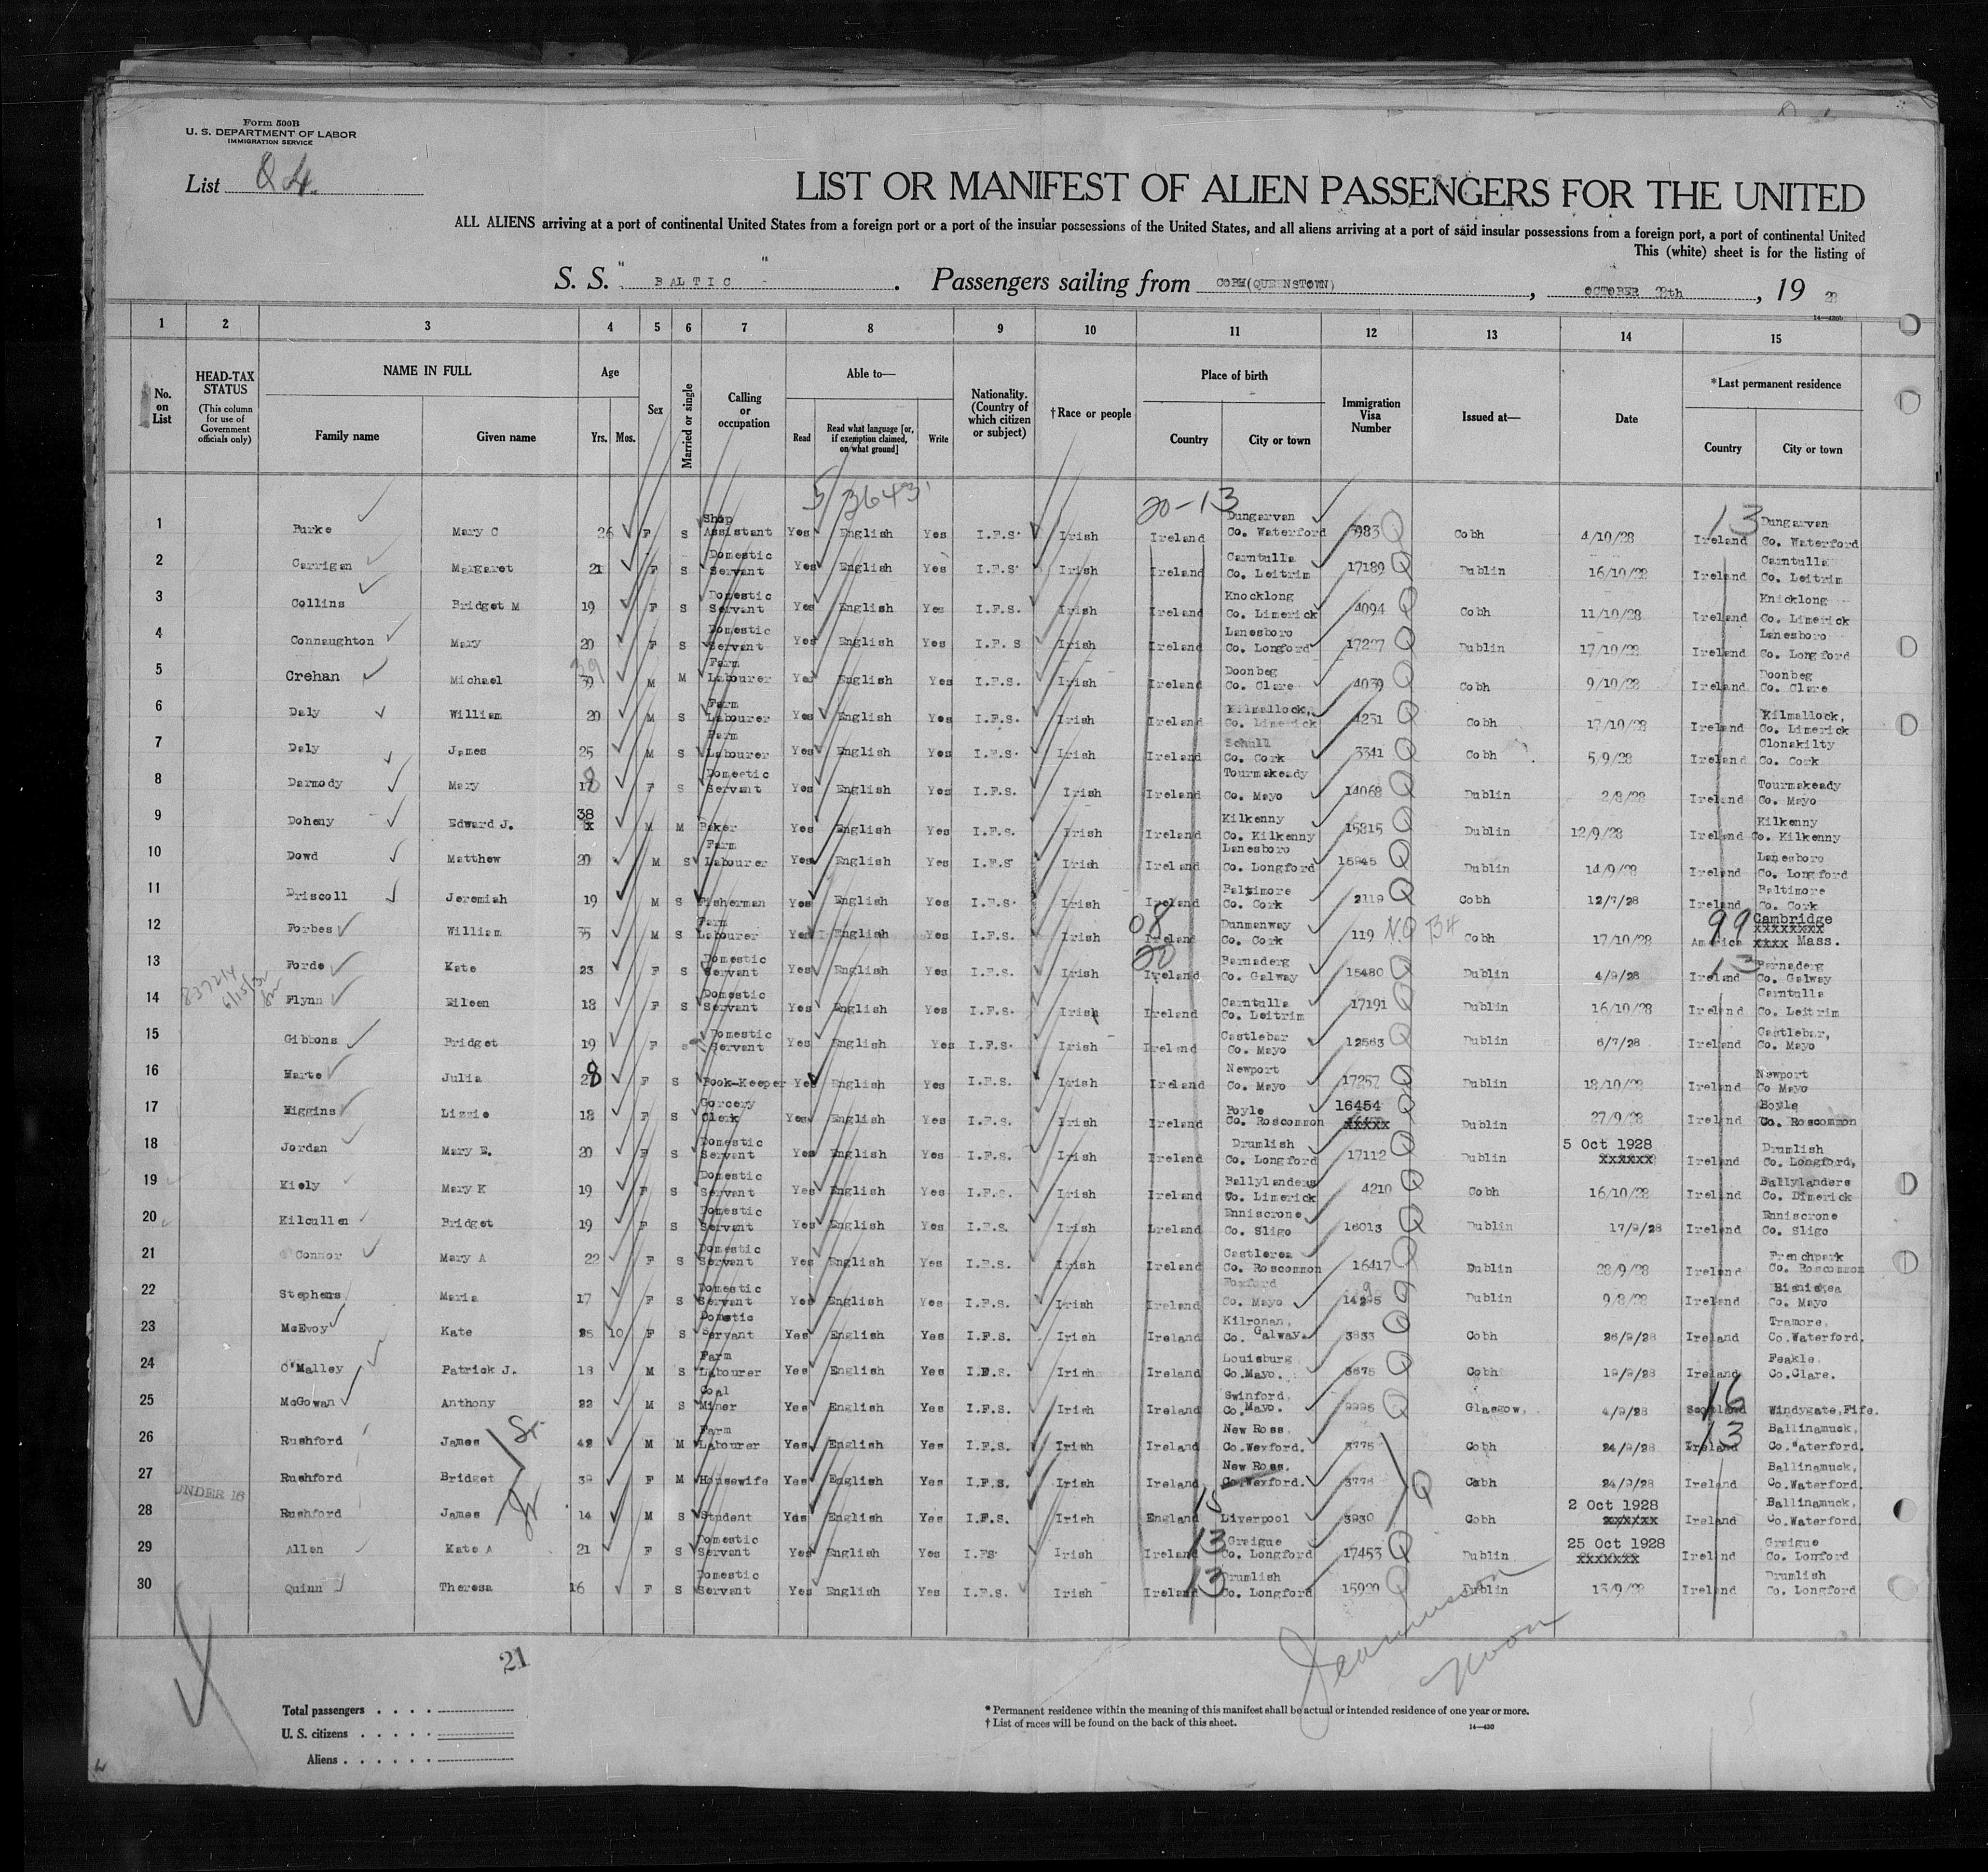 Form 500B
U. S. DEPARTMENT OF LABOR
IMMIGRATION SERVICE
List Q 4.
LIST OR MANIFEST OF ALIEN PASSENGERS FOR THE UNITED
ALL ALIENS arriving at a port of continental United States from a foreign port or a port of the insular possessions of the United States, and all aliens arriving at a port of said insular possessions from a foreign port, a port of continental United
This (white) sheet is for the listing of
S. S. "BALTIC". Passengers sailing from COBH(QUEENSTOWN), OCTOBER 28th, 19 28
14—430b
1 2 3 4 5 6 7 8 9 10 11 12 13 14 15
No. on List
HEAD-TAX STATUS (This column for use of Government officials only)
NAME IN FULL
Family name Given name
Age
Yrs. Mos.
Sex
Married or single
Calling or occupation
Able to—
Read Read what language [or, if exemption claimed, on what ground] Write
Nationality. (Country of which citizen or subject)
†Race or people
Place of birth
Country City or town
Immigration Visa Number
Issued at—
Date
*Last permanent residence
Country City or town
5/3643 20-13 13
1 Burke Mary C 26 F S Shop Assistant Yes English Yes I.F.S. Irish Ireland Dungarvan Co. Waterford 3983 Q Cobh 4/10/28 Ireland Dungarvan Co. Waterford
2 Carrigan Margaret 21 F S Domestic Servant Yes English Yes I.F.S. Irish Ireland Carntulla Co. Leitrim 17189 Q Dublin 16/10/28 Ireland Carntulla Co. Leitrim
3 Collins Bridget M 19 F S Domestic Servant Yes English Yes I.F.S. Irish Ireland Knocklong Co. Limerick 4094 Q Cobh 11/10/28 Ireland Knicklong Co. Limerick
4 Connaughton Mary 20 F S Domestic Servant Yes English Yes I.F. S Irish Ireland Lanesboro Co. Longford 17207 Q Dublin 17/10/28 Ireland Lanesboro Co. Longford
5 Crehan Michael 39 M M Farm Labourer Yes English Yes I.F.S. Irish Ireland Doonbeg Co. Clare 4039 Q Cobh 9/10/28 Ireland Doonbeg Co. Clare
6 Daly William 20 M S Farm Labourer Yes English Yes I.F.S. Irish Ireland Kilmallock, Co. Limerick 4231 Q Cobh 17/10/28 Ireland Kilmallock, Co. Limerick
7 Daly James 25 M S Farm Labourer Yes English Yes I.F.S. Irish Ireland Schull Co. Cork 3341 Q Cobh 5/9/28 Ireland Clonakilty Co. Cork
8 Darmody Mary 18 F S Domestic Servant Yes English Yes I.F.S. Irish Ireland Tourmakeady Co. Mayo 14068 Q Dublin 2/8/28 Ireland Tourmakeady Co. Mayo
9 Doheny Edward J. 38 M M Baker Yes English Yes I.F.S. Irish Ireland Kilkenny Co. Kilkenny 15815 Q Dublin 12/9/28 Ireland Kilkenny Co. Kilkenny
10 Dowd Matthew 20 M S Farm Labourer Yes English Yes I.F.S Irish Ireland Lanesboro Co. Longford 15945 Q Dublin 14/9/28 Ireland Lanesboro Co. Longford
11 Driscoll Jeremiah 19 M S Fisherman Yes English Yes I.F.S. Irish Ireland Baltimore Co. Cork 2119 Q Cobh 12/7/28 Ireland Baltimore Co. Cork
12 Forbes William 35 M S Farm Labourer Yes English Yes I.F.S. Irish 08 Ireland Dunmanway Co. Cork 119 N.Q 34 Cobh 17/10/28 America 99 Cambridge xxxxxxxx xxxx Mass.
13 Forde Kate 23 F S Domestic Servant Yes English Yes I.F.S. Irish 20 Ireland Barnaderg Co. Galway 15480 Q Dublin 4/9/28 Ireland 13 Barnaderg Co. Galway
14 837214 6/15/32 Flynn Eileen 18 F S Domestic Servant Yes English Yes I.F.S. Irish Ireland Carntulla Co. Leitrim 17191 Q Dublin 16/10/28 Ireland Carntulla Co. Leitrim
15 Gibbons Bridget 19 F S Domestic Servant Yes English Yes I.F.S. Irish Ireland Castlebar Co. Mayo 12563 Q Dublin 6/7/28 Ireland Castlebar, Co. Mayo
16 Harte Julia 28 F S Book-Keeper Yes English Yes I.F.S. Irish Ireland Newport Co. Mayo 17257 Q Dublin 18/10/28 Ireland Newport Co Mayo
17 Higgins Lizzie 18 F S Gorcery Clerk Yes English Yes I.F.S. Irish Ireland Boyle Co. Roscommon 16454 xxxxx Q Dublin 27/9/28 Ireland Boyle Co. Roscommon
18 Jordan Mary E. 20 F S Domestic Servant Yes English Yes I.F.S. Irish Ireland Drumlish Co. Longford 17112 Q Dublin 5 Oct 1928 xxxxxx Ireland Drumlish Co. Longford,
19 Kiely Mary K 19 F S Domestic Servant Yes English Yes I.F.S. Irish Ireland Ballylanders Co. Limerick 4210 Q Cobh 16/10/28 Ireland Ballylanders Co. Limerick
20 Kilcullen Bridget 19 F S Domestic Servant Yes English Yes I.F.S. Irish Ireland Enniscrone Co. Sligo 16013 Q Dublin 17/9/28 Ireland Enniscrone Co. Sligo
21 Connor Mary A 22 F S Domestic Servant Yes English Yes I.F.S. Irish Ireland Castlerea Co. Roscommon 16417 Q Dublin 28/9/28 Ireland Frenchpark Co. Roscommon
22 Stephens Maria 17 F S Domestic Servant Yes English Yes I.F.S. Irish Ireland Foxford Co. Mayo 14295 Q Dublin 9/8/28 Ireland Co. Mayo
23 McEvoy Kate 25 10 F S Domstic Servant Yes English Yes I.F.S. Irish Ireland Kilronan, Co. Galway. 3833 Q Cobh 26/9/28 Ireland Tramore, Co.Waterford.
24 O'Malley Patrick J. 18 M S Farm Labourer Yes English Yes I.F.S. Irish Ireland Louisburg Co.Mayo. 3675 Q Cobh 19/9/28 Ireland Feakle. Co.Clare.
25 McGowan Anthony 22 M S Coal Miner Yes English Yes I.F.S. Irish Ireland Swinford. Co.Mayo. 9995 Q Glasgow. 4/9/28 Scotland 16 Windygate,Fife.
26 Rushford James Sr. 42 M M Farm Labourer Yes English Yes I.F.S. Irish Ireland New Ross. Co.Wexford. 3775 Cobh 24/9/28 Ireland 13 Ballinamuck, Co.Waterford.
27 Rushford Bridget 39 F M Housewife Yes English Yes I.F.S. Irish Ireland New Ross. Co.Wexford. 3776 Q Cobh 24/9/28 Ireland Ballinamuck, Co.Waterford.
28 UNDER 16 Rushford James Jr 14 M S Student Yes English Yes I.F.S. Irish England 15 Liverpool 3930 Cobh 2 Oct 1928 xxxxxx Ireland Ballinamuck, Co.Waterford.
29 Allen Kate A 21 F S Domestic Servant Yes English Yes I.FS. Irish Ireland 13 Greigue Co. Longford 17453 Q Dublin 25 Oct 1928 xxxxxxx Ireland Greigue Co. Lonford
30 Quinn Theresa 16 F S Domestic Servant Yes English Yes I.F.S. Irish Ireland 13 Drumlish Co. Longford 15920 Q Dublin 13/9/28 Ireland Drumlish Co. Longford
21
Total passengers
U. S. citizens
Aliens
* Permanent residence within the meaning of this manifest shall be actual or intended residence of one year or more.
† List of races will be found on the back of this sheet.
14—430